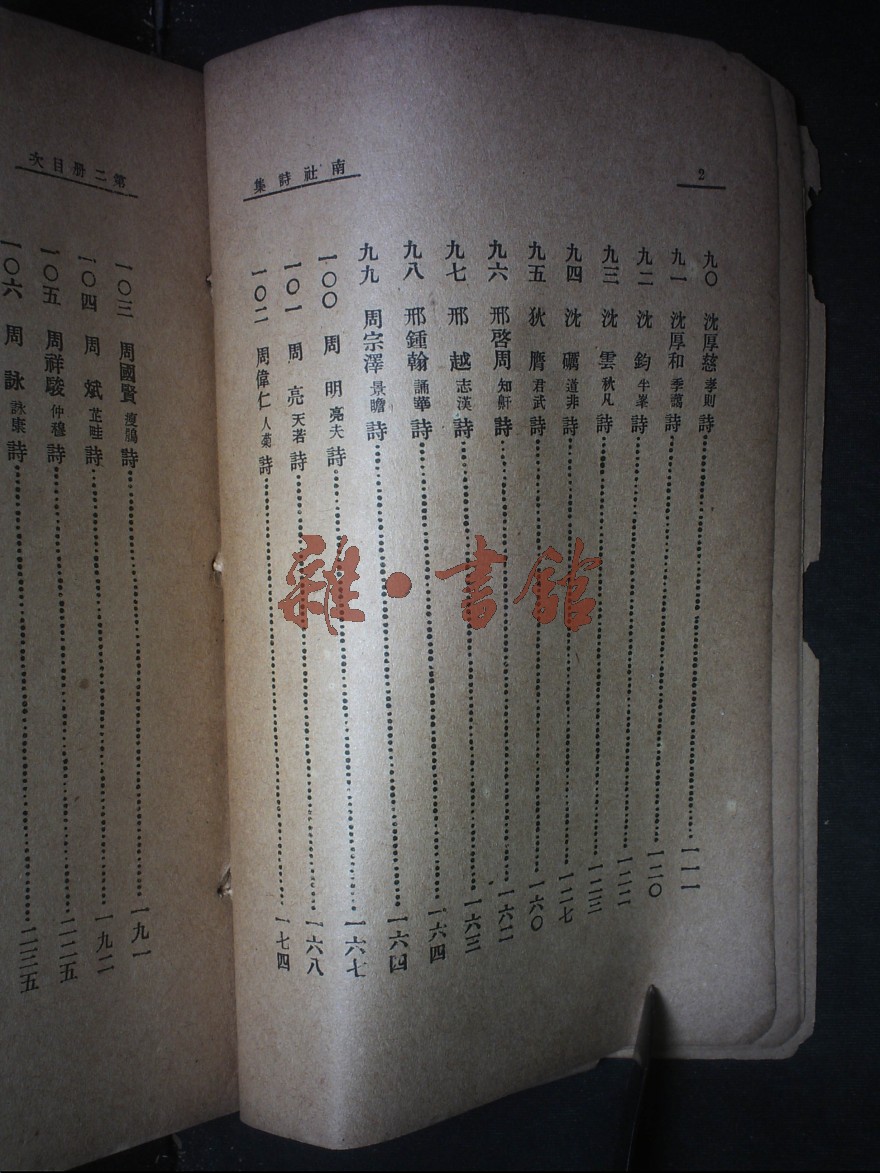 2
南社詩集
九〇 沈厚慈 孝則 詩 一一一
九一 沈厚和 季藹 詩 一二〇
九二 沈鈞 半峯 詩 一二二
九三 沈雲 秋凡 詩 一二三
九四 沈礪 道非 詩 一二七
九五 狄膺 君武 詩 一六〇
九六 邢啓周 知鼾 詩 一六二
九七 邢越 志漢 詩 一六三
九八 邢鍾翰 誦華 詩 一六四
九九 周宗澤 景瞻 詩 一六四
一〇〇 周明 亮夫 詩 一六七
一〇一 周亮 天若 詩 一六八
一〇二 周偉仁 人菊 詩 一七四
第二册目次
一〇三 周國賢 瘦鵑 詩 一九一
一〇四 周斌 芷畦 詩 一九二
一〇五 周祥駿 仲穆 詩 二二五
一〇六 周詠 詠康 詩 二三五
雜·書館